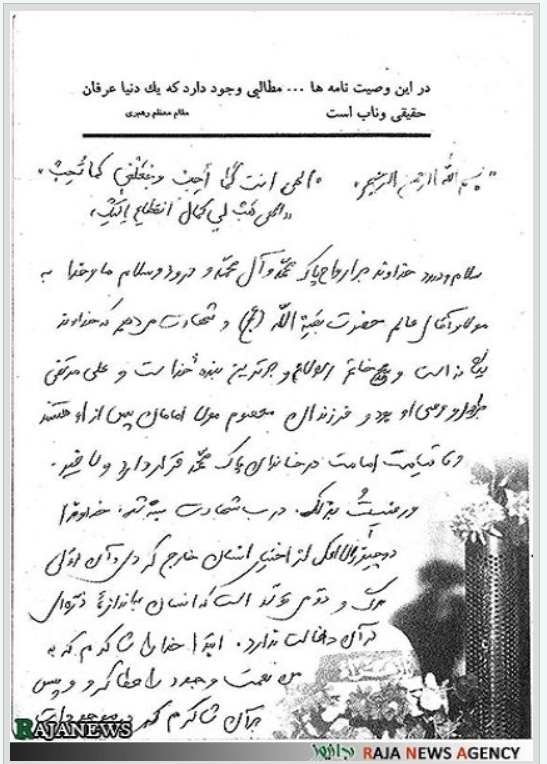 در این وصیت نامه ها ... مطالبی وجود دارد که یك دنیا عرفان
حقیقی وناب است
مقام معظم رهبری
"بسم الله الرحمن الرحیم، "الهی انت کما أُحِبّ فاجعَلْنی کما تُحِبّ"
"الهی هَبْ لی کمال انقطاع إلَیک"
سلام و درود خداوند بر ارواح پاک محمّد و آل محمّد و درود و سلام ما و خدا به
مولا و آقای عالم حضرت بقیة اللّه (عج) و شهادت می دهم که خداوند
یگانه است و محمّد خاتم الانبیاء و برترین بندهٔ خداست و علی مرتضی
او بود و فرزندان معصوم مولا امامان پس از او هستند
و تا قیامت امامت در خاندان پاک محمّد قرار دارد و لا غیر.
و رضیتُ بذلک. در باب شهادت خداوندا
دو چیز از اختیار انسان خارج کردی و آن اوّلی
مرگ و دوّمی تولّد است که انسان به اندازهٔ ذرّه ای
در آن دخالت ندارد. ابتدا خدا را شاکرم که به
من نعمت وجود را عطا کرد و سپس
بر آن شاکرم که
RAJANEWS
رجانیوز
RAJA NEWS AGENCY